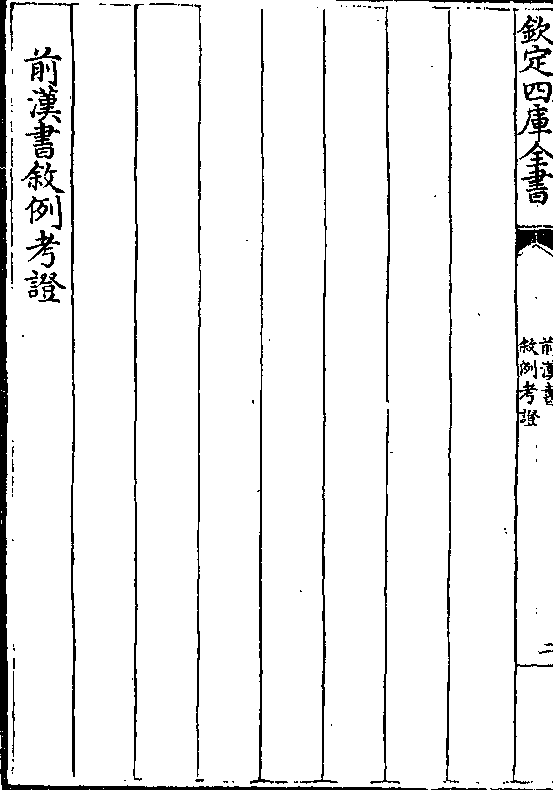 欽定四庫全書
前漢書
敘例考證
二
前漢書敘例考證